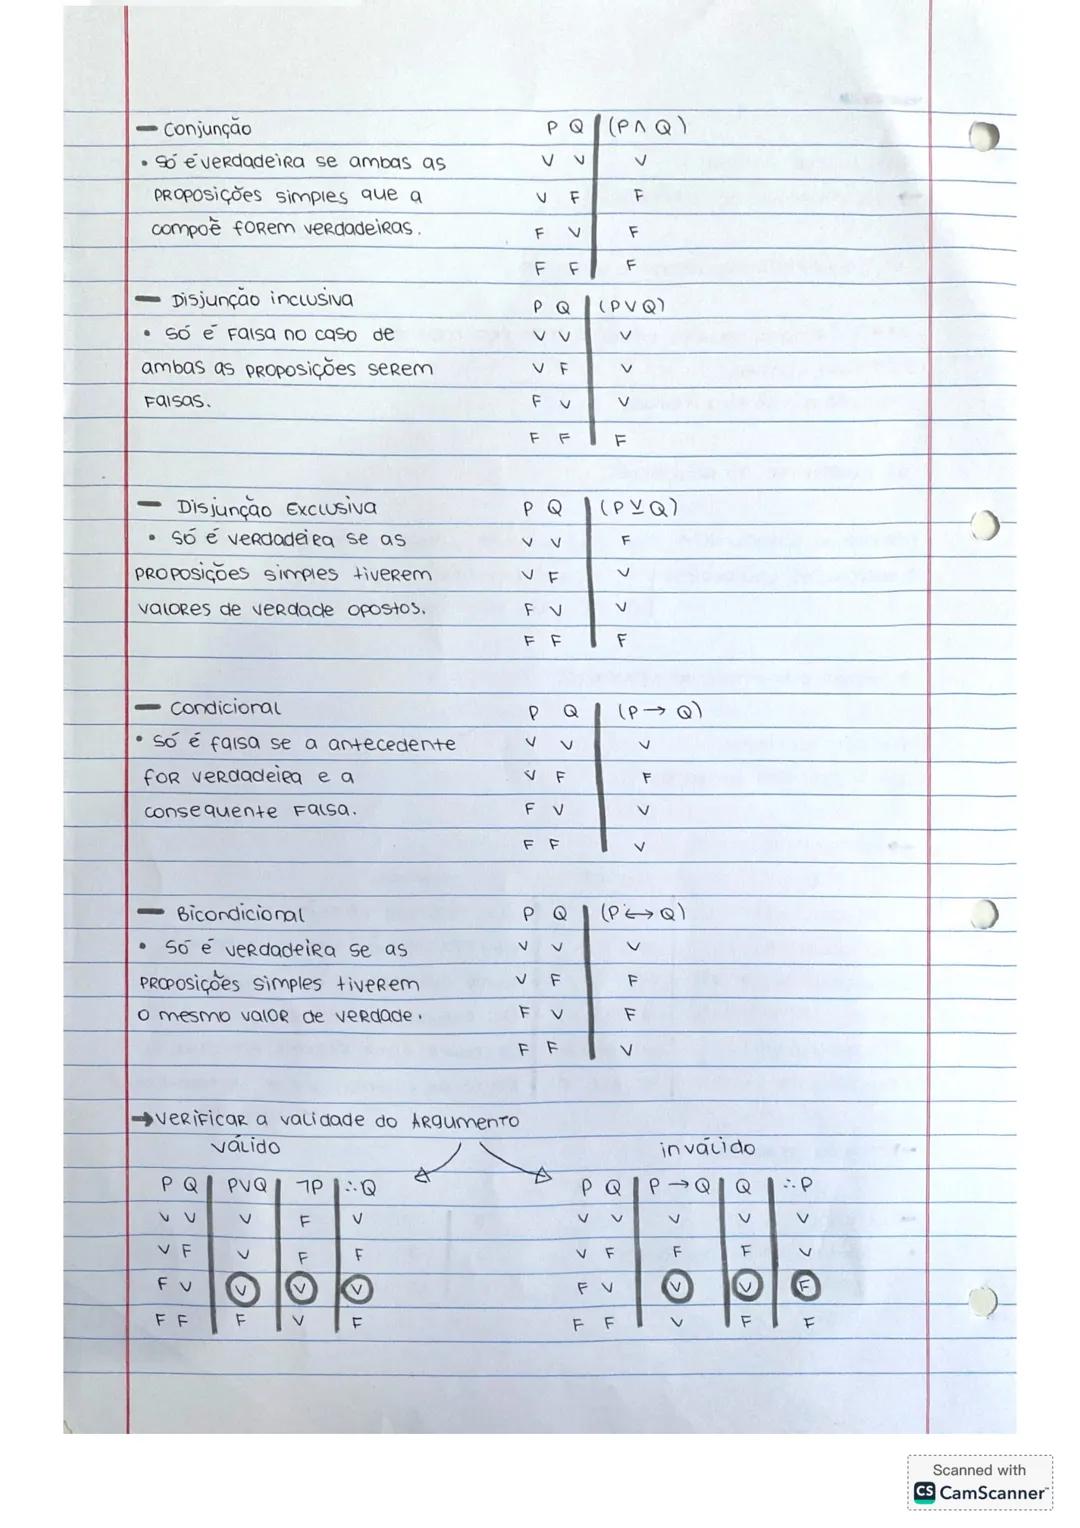 — Conjunção
• Só é verdadeira se ambas as
proposições simples que a
compoẽ forem verdadeiras.
P Q | (P∧Q)
V V | V
V F | F
F V | F
F F | F
— Disjunção inclusiva
• Só é falsa no caso de
ambas as proposições serem
falsas.
P Q | (P∨Q)
V V | V
V F | V
F V | V
F F | F
— Disjunção Exclusiva
• Só é verdadeira se as
proposições simples tiverem
valores de verdade opostos.
P Q | (P⊻Q)
V V | F
V F | V
F V | V
F F | F
— Condicional
• Só é falsa se a antecedente
for verdadeira e a
consequente falsa.
P Q | (P→Q)
V V | V
V F | F
F V | V
F F | V
— Bicondicional
• Só é verdadeira se as
proposições simples tiverem
o mesmo valor de verdade.
P Q | (P↔Q)
V V | V
V F | F
F V | F
F F | V
→ Verificar a validade do Argumento
válido
P Q | P∨Q | ¬P | ∴Q
V V | V | F | V
V F | V | F | F
F V | V | V | V
F F | F | V | F
inválido
P Q | P→Q | Q | ∴P
V V | V | V | V
V F | F | F | V
F V | V | V | F
F F | V | F | F
Scanned with
CS CamScanner